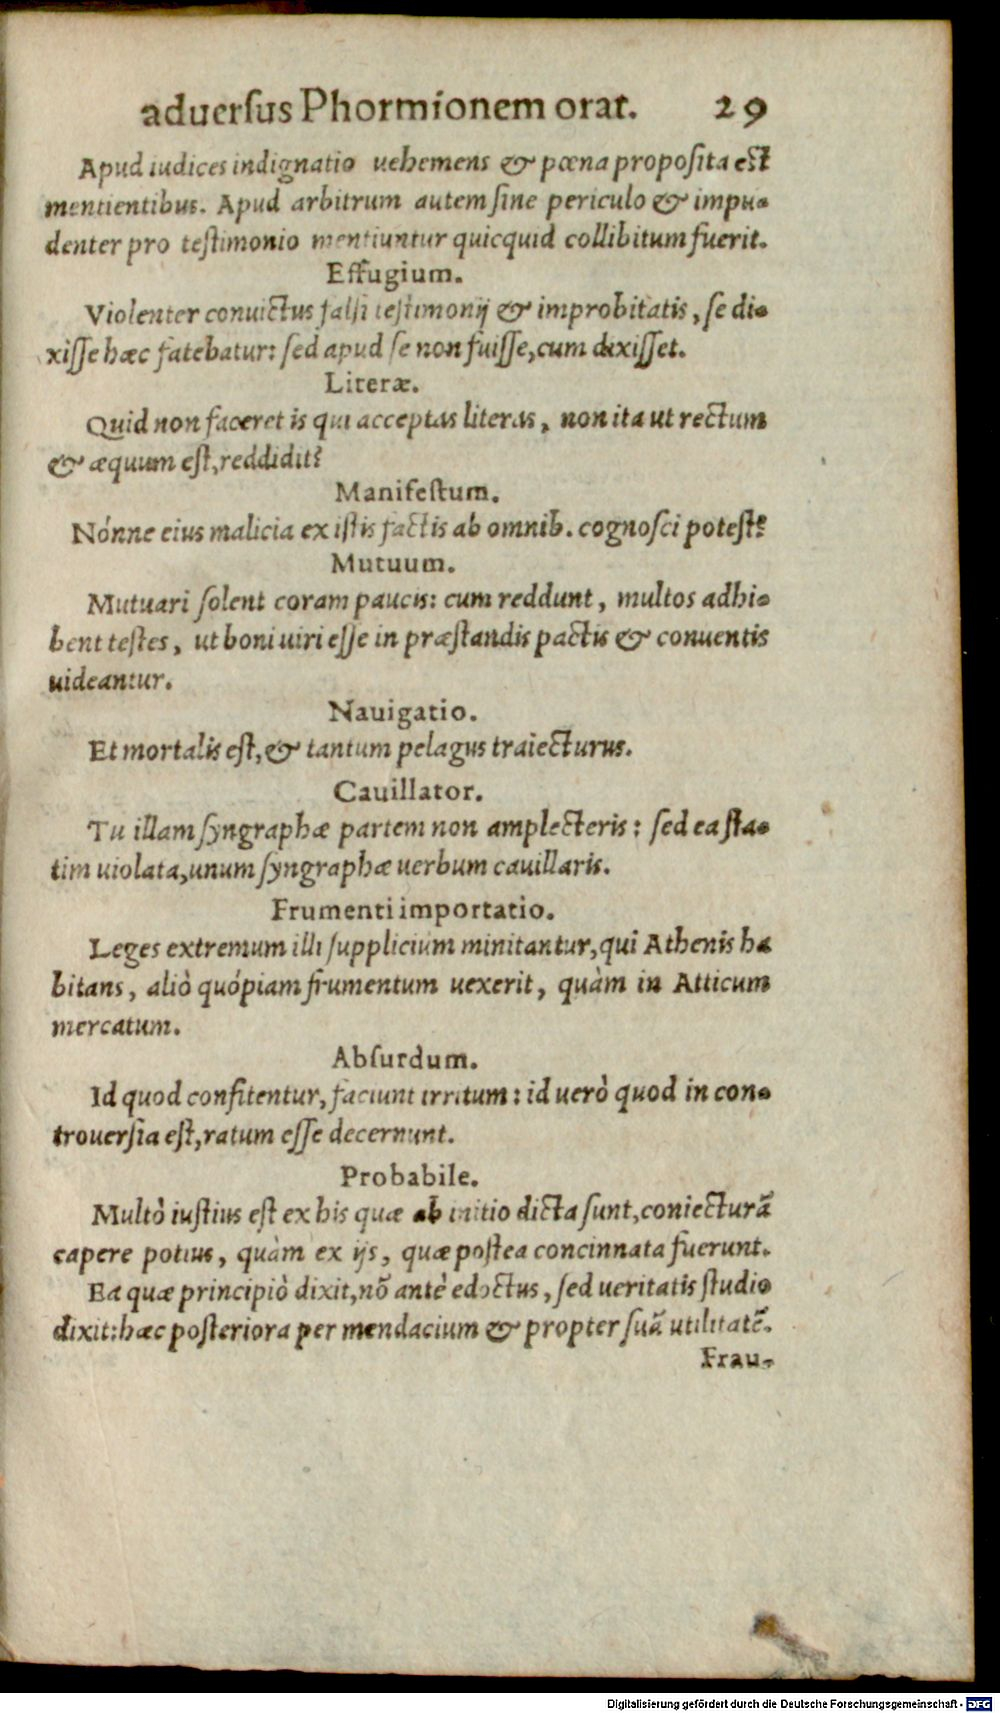 aduersus Phormionem orat. 29
Apud iudices indignatio uehemens & pœna proposita est
mentientibus. Apud arbitrum autem sine periculo & impu-
denter pro testimonio mentiuntur quicquid collibitum fuerit.
Effugium.
Violenter conuictus falsi testimonij & improbitatis, se di-
xisse hæc fatebatur: sed apud se non fuisse, cum dixisset.
Literæ.
Quid non faceret is qui acceptas literas, non ita ut rectum
& æquum est, reddidit?
Manifestum.
Nónne eius malicia ex istis factis ab omnib. cognosci potest?
Mutuum.
Mutuari solent coram paucis: cum reddunt, multos adhi-
bent testes, ut boni uiri esse in præstandis pactis & conuentis
uideantur.
Nauigatio.
Et mortalis est, & tantum pelagus traiecturus.
Cauillator.
Tu illam syngraphæ partem non amplecteris: sed ea sta-
tim uiolata, unum syngraphæ uerbum cauillaris.
Frumenti importatio.
Leges extremum illi supplicium minitantur, qui Athenis ha
bitans, aliò quópiam frumentum uexerit, quàm in Atticum
mercatum.
Absurdum.
Id quod confitentur, faciunt irritum: id uerò quod in con-
trouersia est, ratum esse decernunt.
Probabile.
Multò iustius est ex his quæ ab initio dicta sunt, coniecturã
capere potius, quàm ex ijs, quæ postea concinnata fuerunt.
Ea quæ principiò dixit, nõ antè edoctus, sed ueritatis studio
dixit: hæc posteriora per mendacium & propter suã utilitatẽ.
Frau-
Digitalisierung gefördert durch die Deutsche Forschungsgemeinschaft - DFG